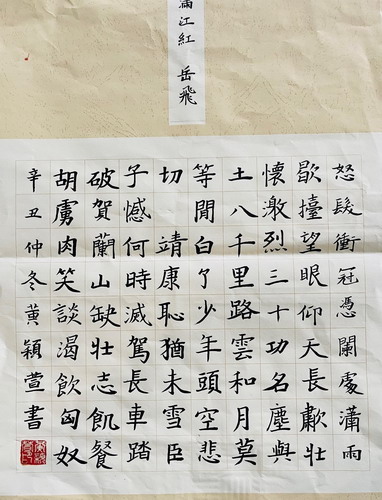 滿江紅 岳飛
怒髮衝冠憑闌處瀟雨
歇擡望眼仰天長歗壯
懷激烈三十功名塵與
土八千里路雲和月莫
等閒白了少年頭空悲
切 靖康恥猶未雪臣
子憾何時滅駕長車踏
破賀蘭山缺壯志飢餐
胡虜肉笑談渴飲匈奴
辛丑仲冬黃穎萱書